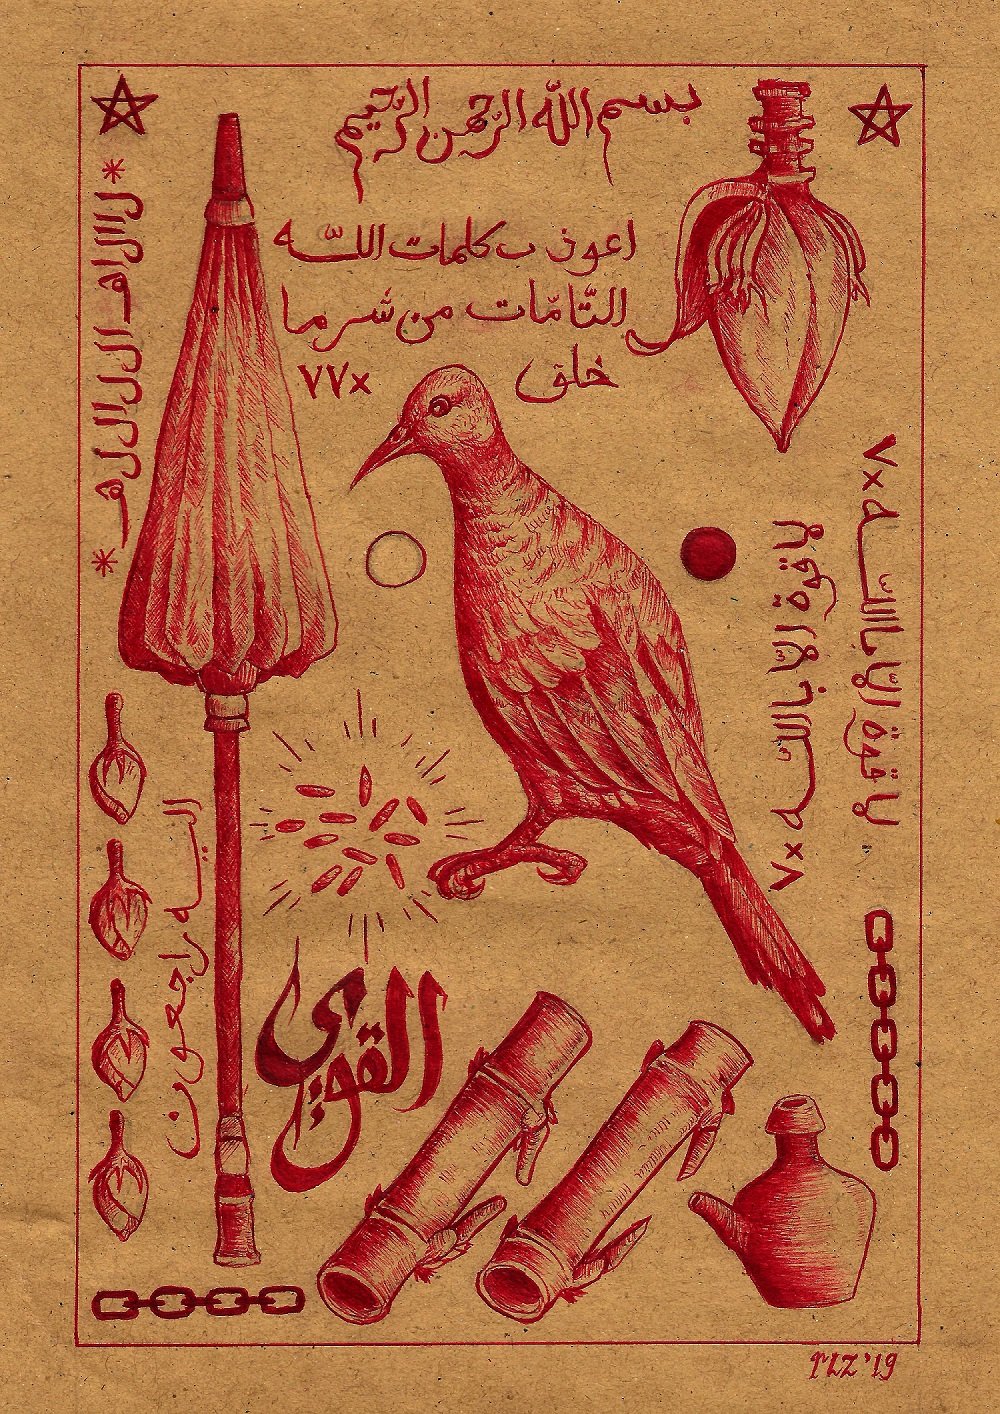 بسم الله الرحمن الرحيم
اعوذ ب كلمات اللّٰه
التّامّات من شر ما
خلق
٧٧x
٧x
لا قوة الّا باللّٰه
لا قوة الا بالله
٧x
اليه راجعون
القوي
TLZ '19